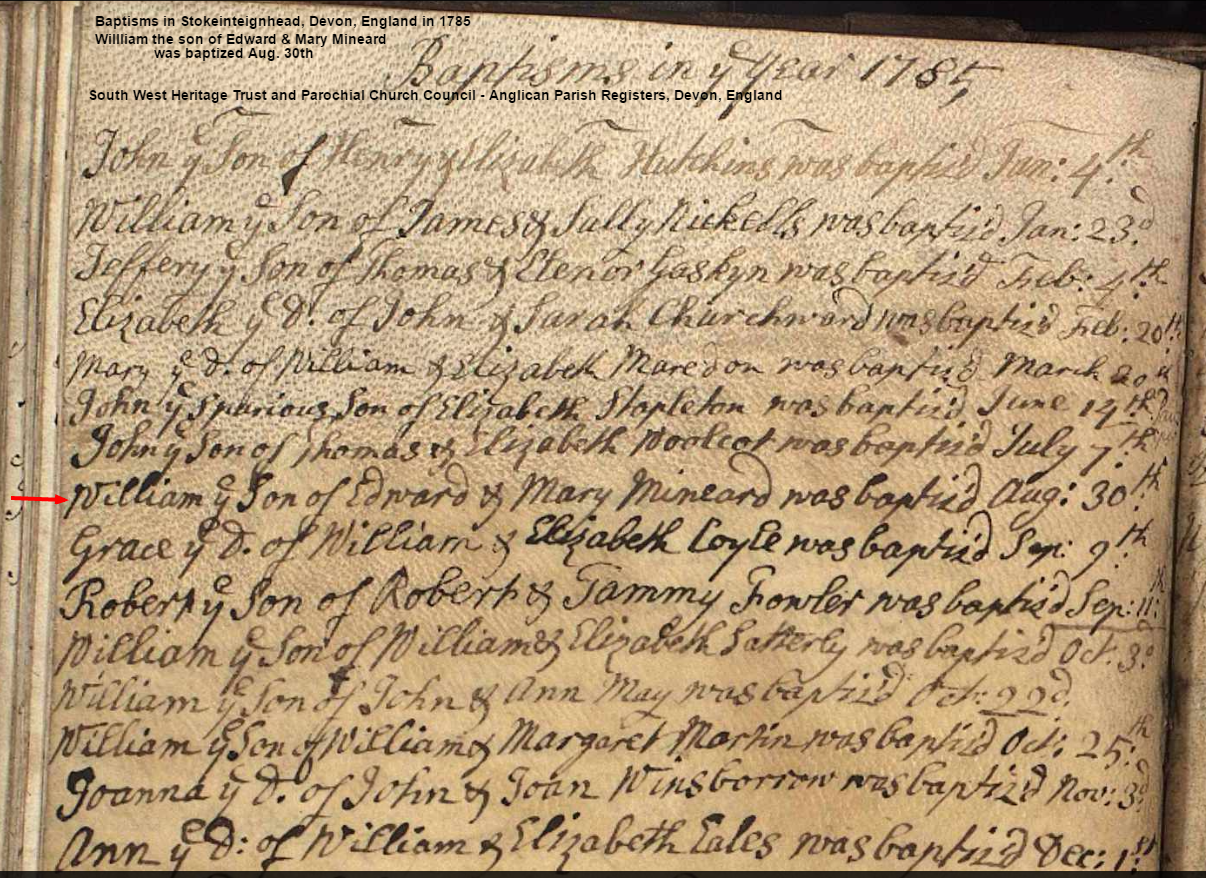 Baptisms in Stokeinteignhead, Devon, England in 1785
Willliam the son of Edward & Mary Mineard
was baptized Aug. 30th
Baptisms in yͤ Year 1785,
South West Heritage Trust and Parochial Church Council - Anglican Parish Registers, Devon, England
John yͤ Son of Henry & Elizabeth Hutchins was baptiz'd Jan: 4.th
William yͤ Son of James & Sally Nickells was baptiz'd Jan: 23.d
Jeffery yͤ Son of Thomas & Elenor Gaskyn was baptiz'd Feb: 4.th
Elizabeth yͤ D. of John & Sarah Churchward was baptiz'd Feb: 20th
Mary yͤ D. of William & Elizabeth Maredon was baptiz'd March 20th
John yͤ Spurious Son of Elizabeth Stapleton was baptiz'd June 14th
John yͤ Son of Thomas & Elizabeth Woolcot was baptiz'd July 7.th
William yͤ Son of Edward & Mary Mineard was baptiz'd Aug: 30th
Grace yͤ D. of William & Elizabeth Coyle was baptiz'd Sep: 9th
Robert yͤ Son of Robert & Tammy Fowler was baptiz'd Sep: 11th
William yͤ Son of William & Elizabeth Satterly was baptiz'd Oct. 3d
William yͤ Son of John & Ann May was baptiz'd Oct: 22d
William yͤ Son of William & Margaret Martin was baptiz'd Oct: 25th
Joanna yͤ D. of John & Joan Winsborrow was baptiz'd Nov: 3d
Ann yͤ D: of William & Elizabeth Eales was baptiz'd Dec: 1st